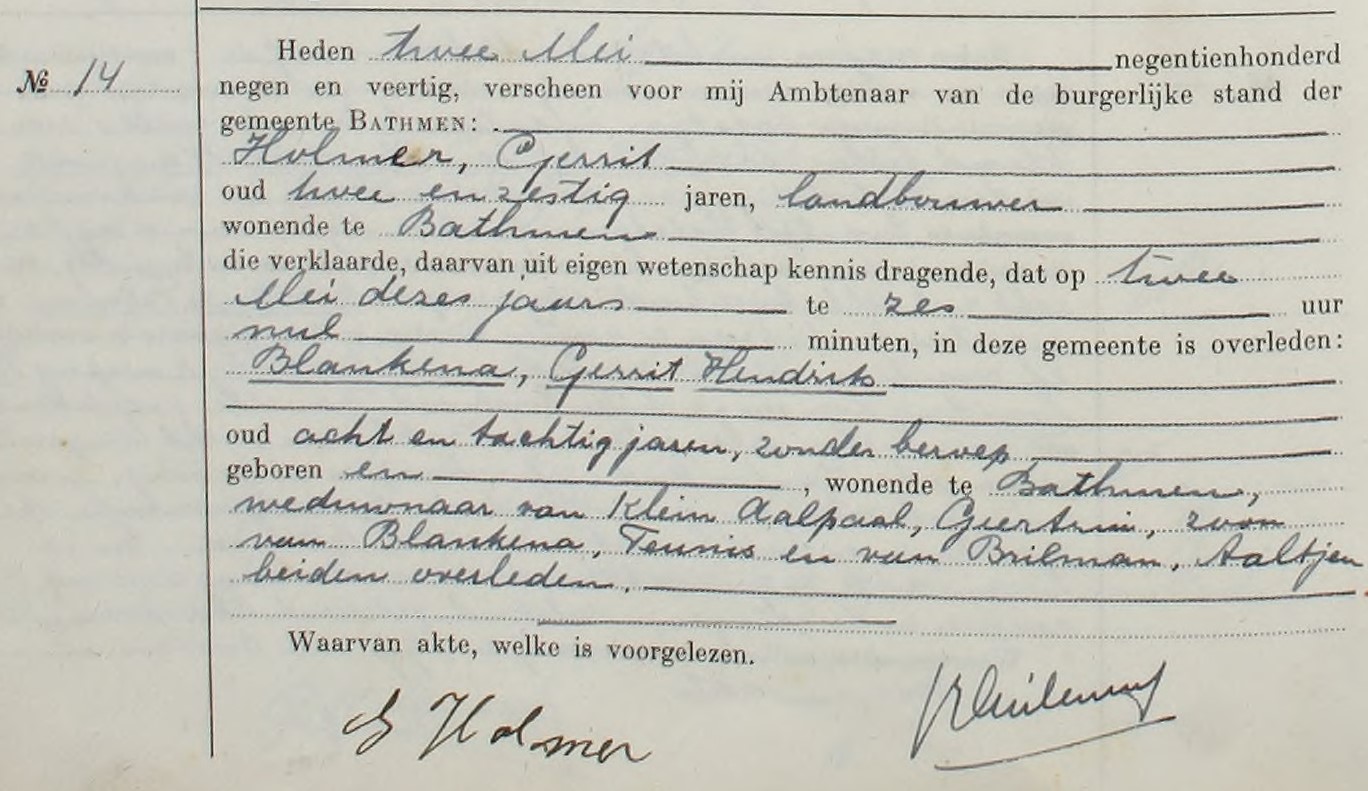 № 14
Heden twee Mei negentienhonderd
negen en veertig, verscheen voor mij Ambtenaar van de burgerlijke stand der
gemeente BATHMEN:
Holmer, Gerrit
oud twee en zestig jaren, landbouwer
wonende te Bathmen
die verklaarde, daarvan uit eigen wetenschap kennis dragende, dat op twee
Mei dezes jaars te zes uur
nul minuten, in deze gemeente is overleden:
Blankena, Gerrit Hendrik
oud acht en tachtig jaren, zonder beroep
geboren en , wonende te Bathmen,
weduwnaar van Klein Aalpaal, Geertuin, zoon
van Blankena, Teunis en van Brilman, Aaltjen
beiden overleden.
Waarvan akte, welke is voorgelezen.
G Holmer